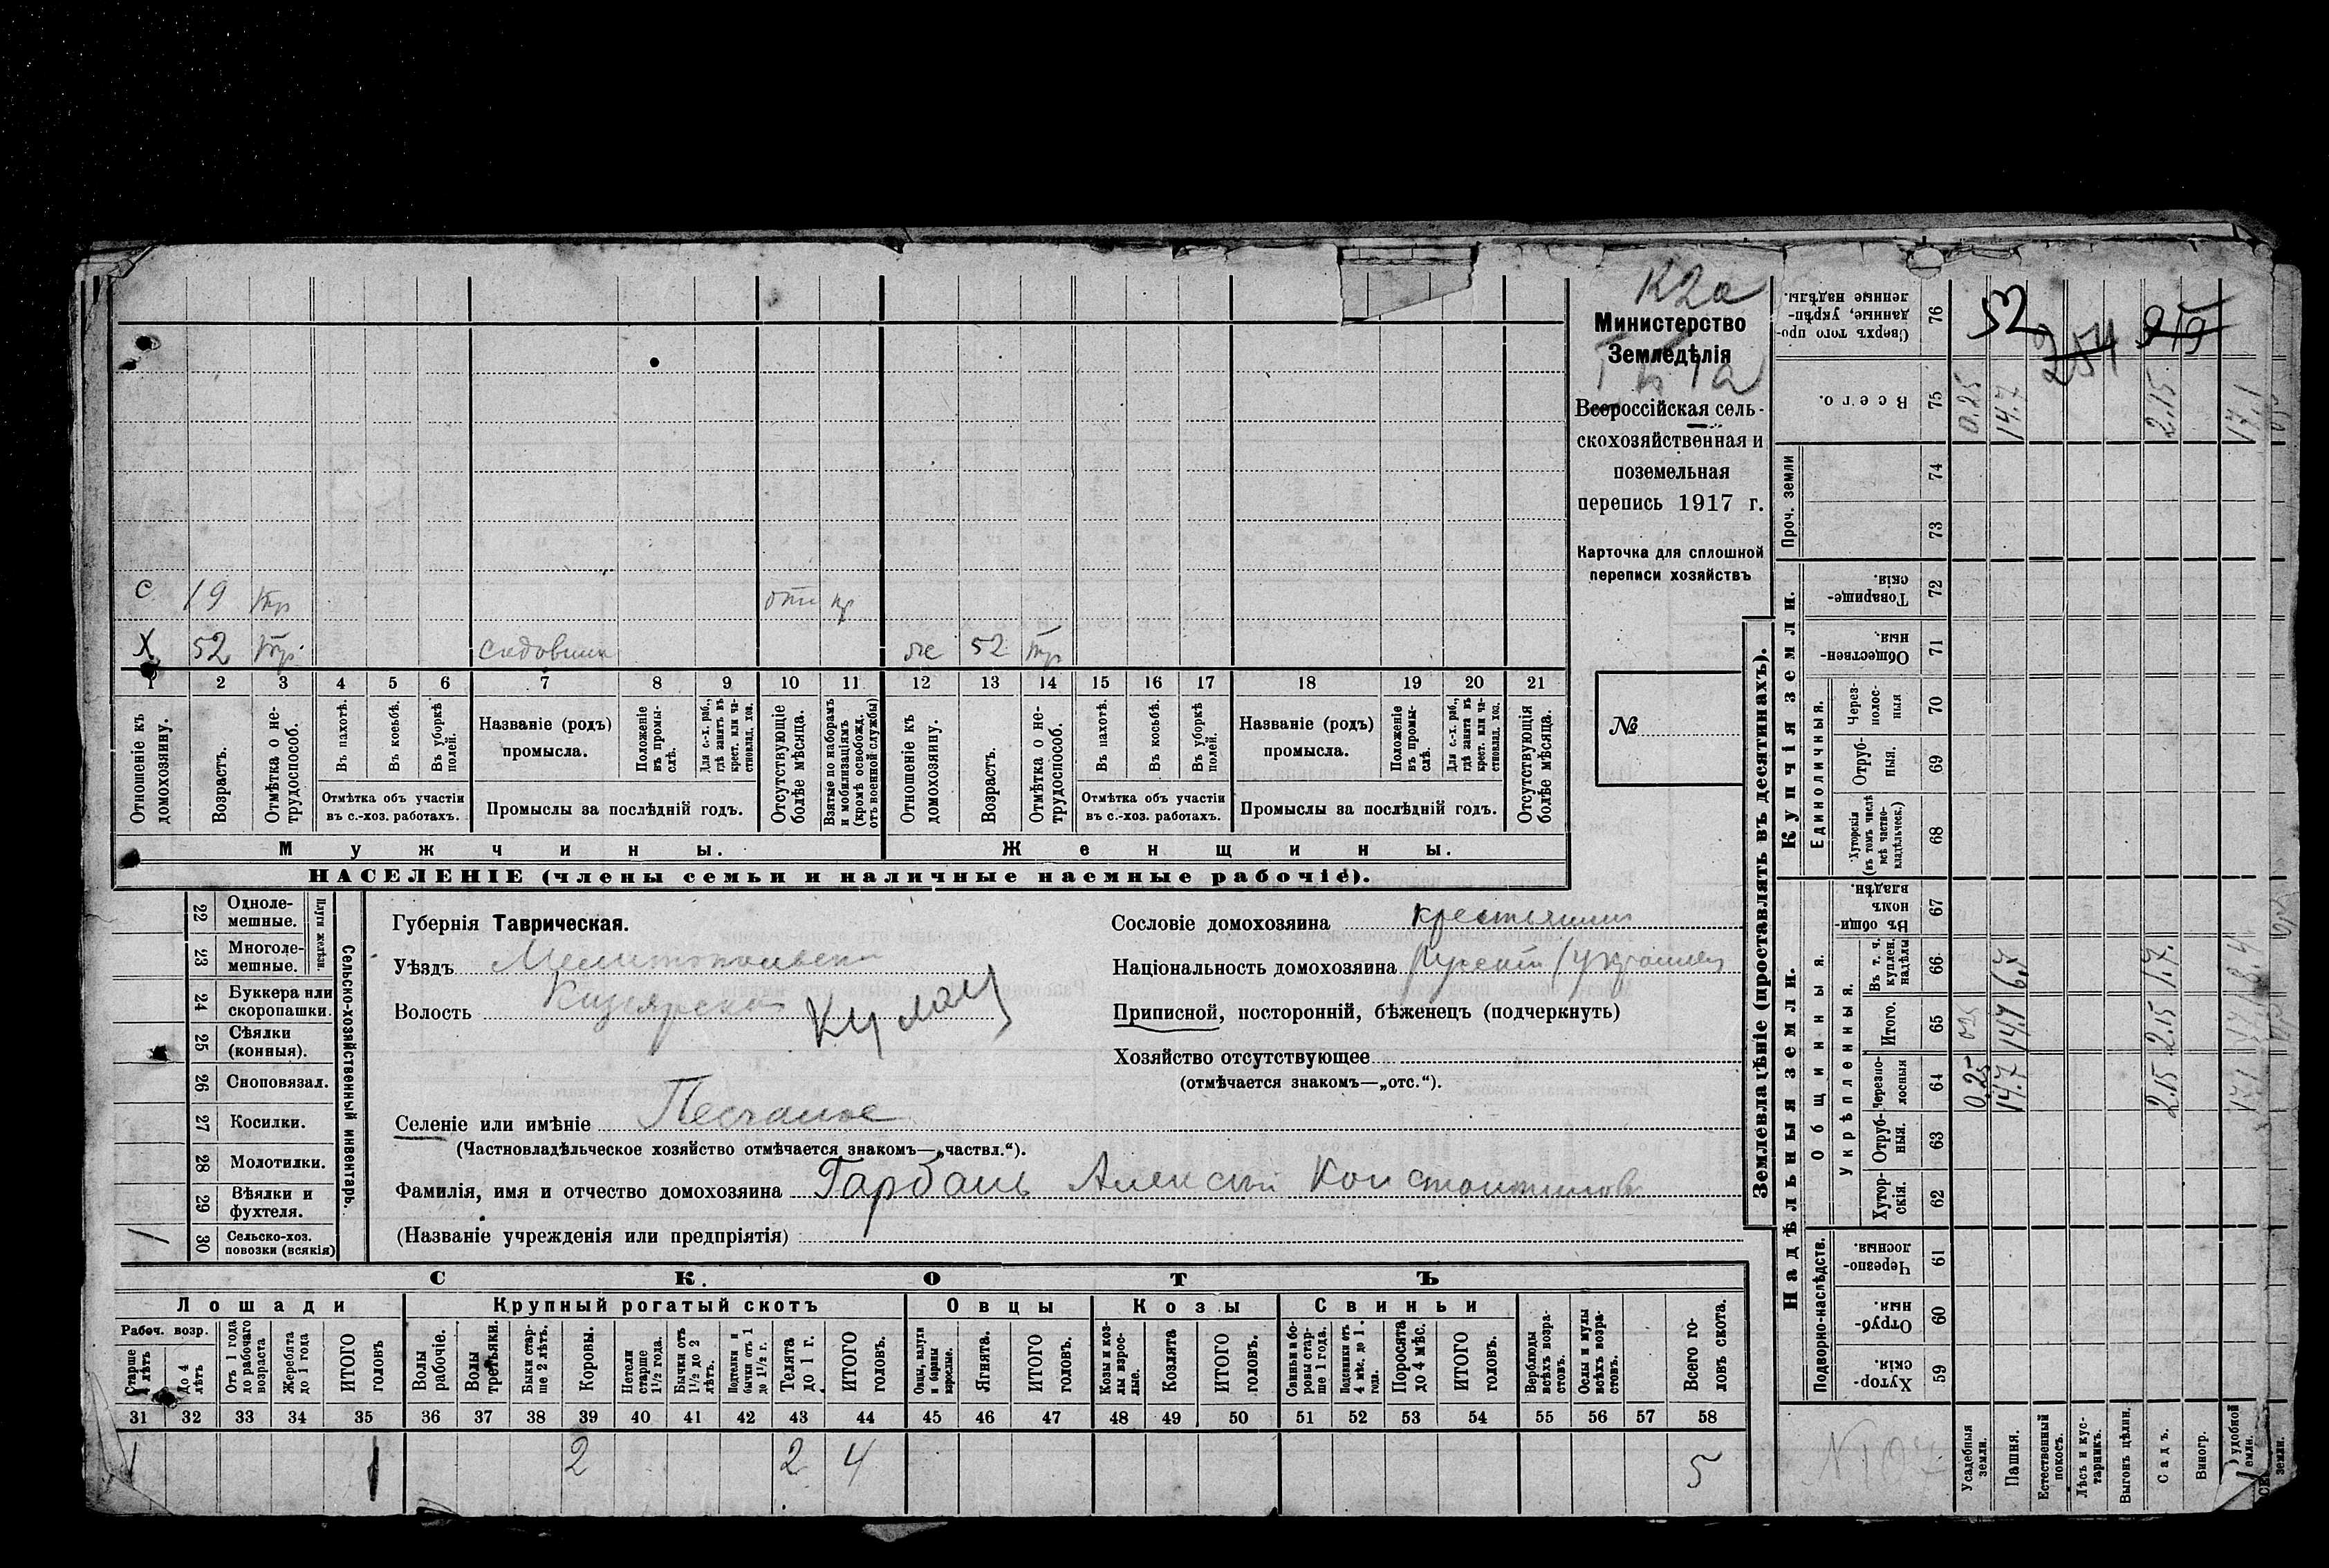 К2а
Министерство
Земледѣлія
Всероссійская сель-
скохозяйственная и
поземельная
перепись 1917 г.
Карточка для сплошной
переписи хозяйствъ
№
с 19 тр отс пр
Х 52 тр. садовник ж 52 тр
1 2 3 4 5 6 7 8 9 10 11 12 13 14 15 16 17 18 19 20 21
Отношеніе къ домохозяину.
Возрастъ.
Отмѣтка о не-трудоспособ.
Въ пахотѣ.
Въ косьбѣ.
Въ уборкѣ полей.
Отмѣтка объ участіи
въ с.-хоз. работахъ.
Названіе (родъ)
промысла.
Положеніе въ промы-слѣ.
Для с.-х. раб., гдѣ занятъ въ крест. или ча-стновлад. хоз.
Промыслы за послѣдній годъ.
Отсутствующіе болѣе мѣсяца.
Взятые по наборамъ и мобилизаціямъ (кромѣ освобожд. отъ военной службы)
Отношеніе къ домохозяину.
Возрастъ.
Отмѣтка о не-трудоспособ.
Въ пахотѣ.
Въ косьбѣ.
Въ уборкѣ полей.
Отмѣтка объ участіи
въ с.-хоз. работахъ.
Названіе (родъ)
промысла.
Положеніе въ промы-слѣ.
Для с.-х. раб., гдѣ занята въ крест. или ча-стновлад. хоз.
Промыслы за послѣдній годъ.
Отсутствующія болѣе мѣсяца.
Мужчины. Женщины.
НАСЕЛЕНІЕ (члены семьи и наличные наемные рабочіе).
22 Одноле-мешные.
23 Многоле-мешные.
Плуги желѣзн.
24 Буккера или скоропашки.
25 Сѣялки (конныя).
26 Сноповязал.
27 Косилки.
28 Молотилки.
29 Вѣялки и фухтеля.
1 30 Сельско-хоз. повозки (всякія)
Сельско-хозяйственный инвентарь.
Губернія Таврическая.
Уѣздъ Мелитопольскій
Волость Кизіярская
Селеніе или имѣніе Песчаное
(Частновладѣльческое хозяйство отмѣчается знакомъ—„частвл.“).
Фамилія, имя и отчество домохозяина Гарбань Алексѣй Константинов
(Названіе учрежденія или предпріятія)
Сословіе домохозяина крестьянинъ
Національность домохозяина Русскій /украинец
Приписной, посторонній, бѣженецъ (подчеркнуть)
Хозяйство отсутствующее
(отмѣчается знакомъ—„отс.“).
СКОТЪ
Лошади Крупный рогатый скотъ Овцы Козы Свиньи
Рабоч. возр.
Старше 4 лѣтъ
До 4 лѣтъ
Отъ 1 года до рабочаго возраста
Жеребята до 1 года
ИТОГО головъ
Волы рабочіе.
Волы третьяки.
Быки стар-ше 2 лѣтъ.
Коровы.
Нетели старше 1½ года.
Бычки отъ 1½ до 2 лѣтъ.
Подтелки и бычки отъ 1 до 1½ г.
Телята до 1 г.
ИТОГО головъ.
Овцы, валухи и бараны взрослые.
Ягнята.
ИТОГО головъ.
Козы и коз-лы взрос-лые.
Козлята
ИТОГО головъ.
Свиньи и бо-ровы стар-ше 1 года.
Подсвинки отъ 4 мѣс. до 1 года.
Поросята до 4 мѣс.
ИТОГО головъ.
Верблюды всѣхъ возра-стовъ.
Ослы и мулы всѣхъ возра-стовъ.
Всего го-ловъ скота.
31 32 33 34 35 36 37 38 39 40 41 42 43 44 45 46 47 48 49 50 51 52 53 54 55 56 57 58
1 1 2 2 4 5
Землевладѣніе (проставлять въ десятинахъ).
Надѣльныя земли. Купчія земли.
Подворно-наслѣдств.
Общинныя.
Укрѣпленныя.
Единоличныя.
Проч. земли
Сверхъ того про-данные, укрѣп-ленные надѣлы. 76
Всего. 75
74
73
Товарище-скія. 72
Обществен-ныя. 71
Через-полос-ныя 70
Отруб-ныя. 69
Хуторскія (въ томъ числѣ всѣ частно-владѣльческ.) 68
Въ общин-номъ владѣн. 67
Въ т. ч. куплен. надѣлы 66
Итого. 65
Черезпо-лосныя 64
Отруб-ныя. 63
Хутор-скія. 62
Черезпо-лосныя. 61
Отруб-ныя. 60
Хутор-скія. 59
Усадебныя земли. 0.25 0.25
Пашня. 14.7 14.7 6.7 14.7
Естественный покосъ.
Лѣсъ и кус-тарникъ.
Выгонъ цѣлин.
Садъ. 2.15 2.15 1.7. 2.15
Виногр.
удобной земли. 17.1 17.1 8.4 17.1
земли.
52
254